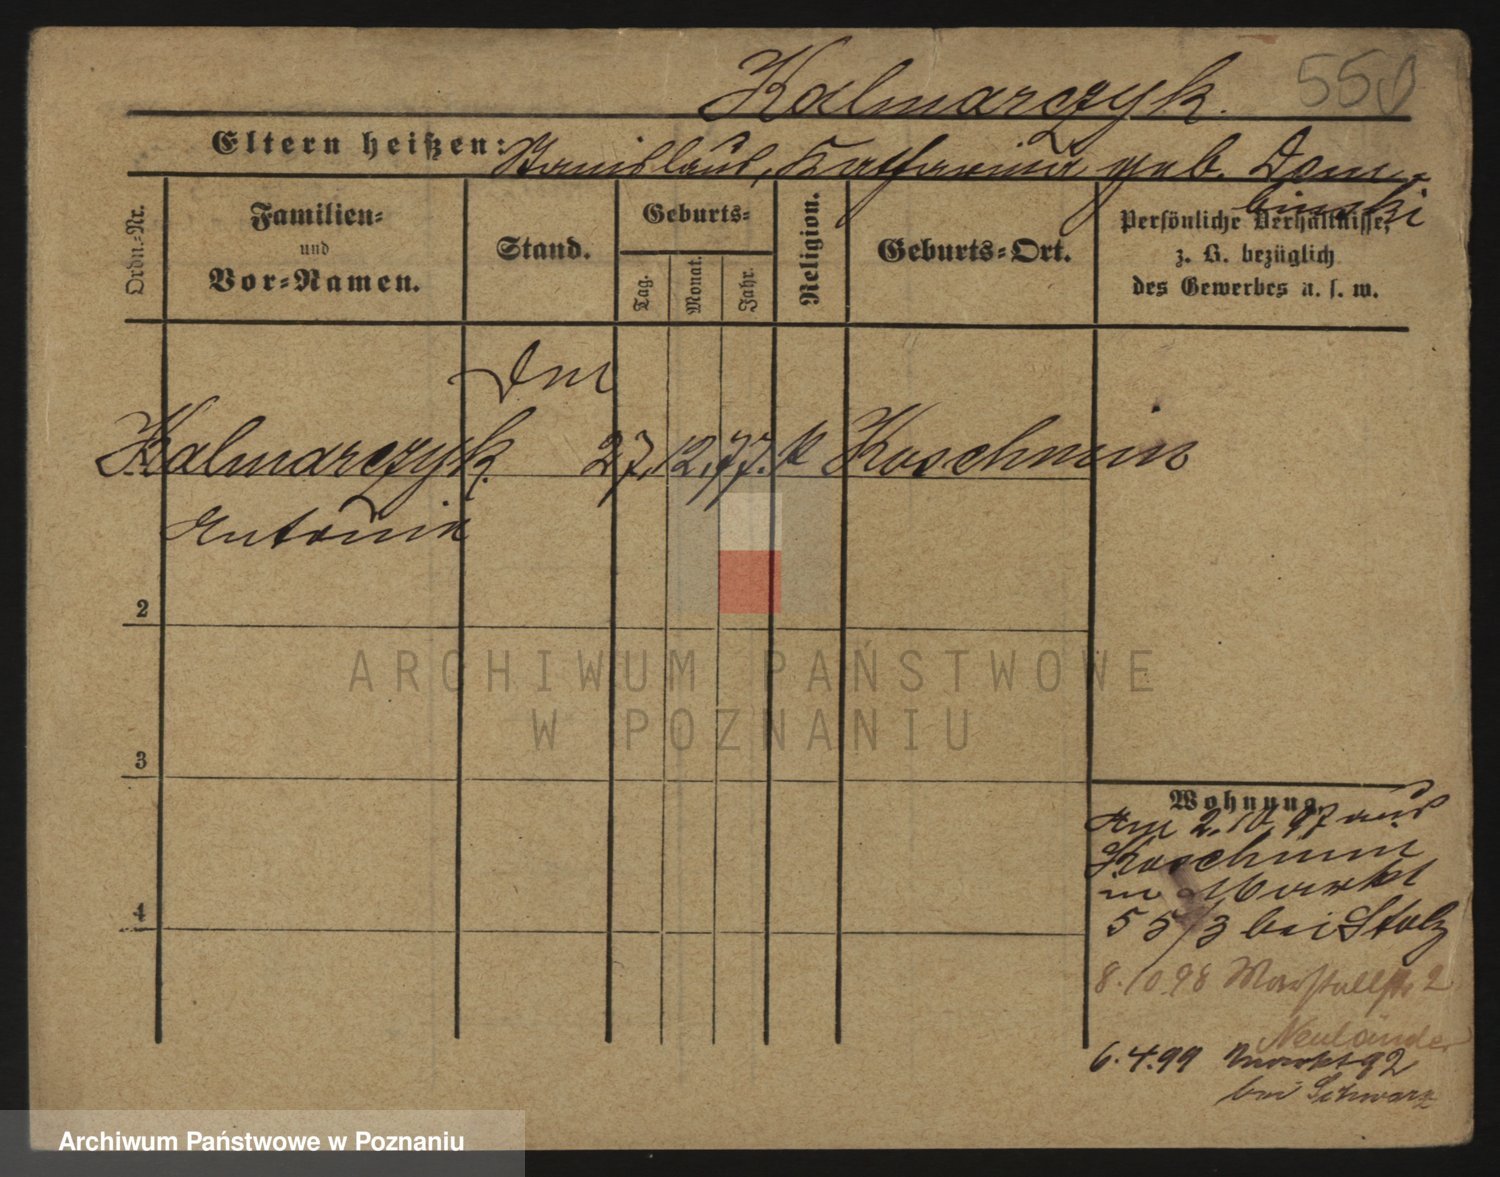 Kalmarczyk. 558
Eltern heißen: Stanislaus, Katharina geb. Dom-
binski
Ordn.-Nr.
Familien-
und
Vor-Namen.
Stand.
Geburts-
Tag.
Monat.
Jahr.
Religion.
Geburts-Ort.
Persönliche Verhältnisse,
z. B. bezüglich
des Gewerbes u. s. w.
Kalmarczyk. 27. 12. 77. k Koschmin
Antonie
2
3
4
Wohnung.
Am 2.10.97 aus
Koschmin
Markt
55/3 bei Stolz
8.10.98 Marstallstr 2
Neuländer
6.4.99 Markt 92
bei Schwarz
ARCHIWUM PAŃSTWOWE
W POZNANIU
Archiwum Państwowe w Poznaniu